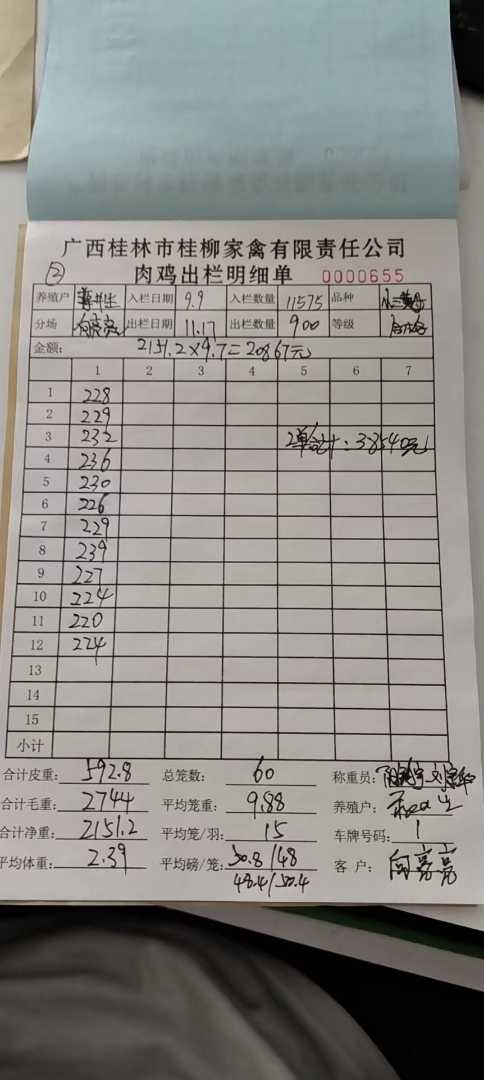 广西桂林市桂柳家禽有限责任公司
② 肉鸡出栏明细单 0000655
养殖户 入栏日期 9.9 入栏数量 11575 品种
分场 向亮亮 出栏日期 11.17 出栏数量 900 等级
金额: 2151.2×9.7=20867元
1 2 3 4 5 6 7
1 228
2 229
3 232 2单合计:38540元
4 236
5 230
6 226
7 229
8 239
9 227
10 224
11 220
12 224
13
14
15
小计
合计皮重: 592.8 总笼数: 60 称重员:
合计毛重: 2744 平均笼重: 9.88 养殖户:
合计净重: 2151.2 平均笼/羽: 15 车牌号码: 1
平均体重: 2.39 平均磅/笼: 50.8/48 客户: 向亮亮
48.4/50.4